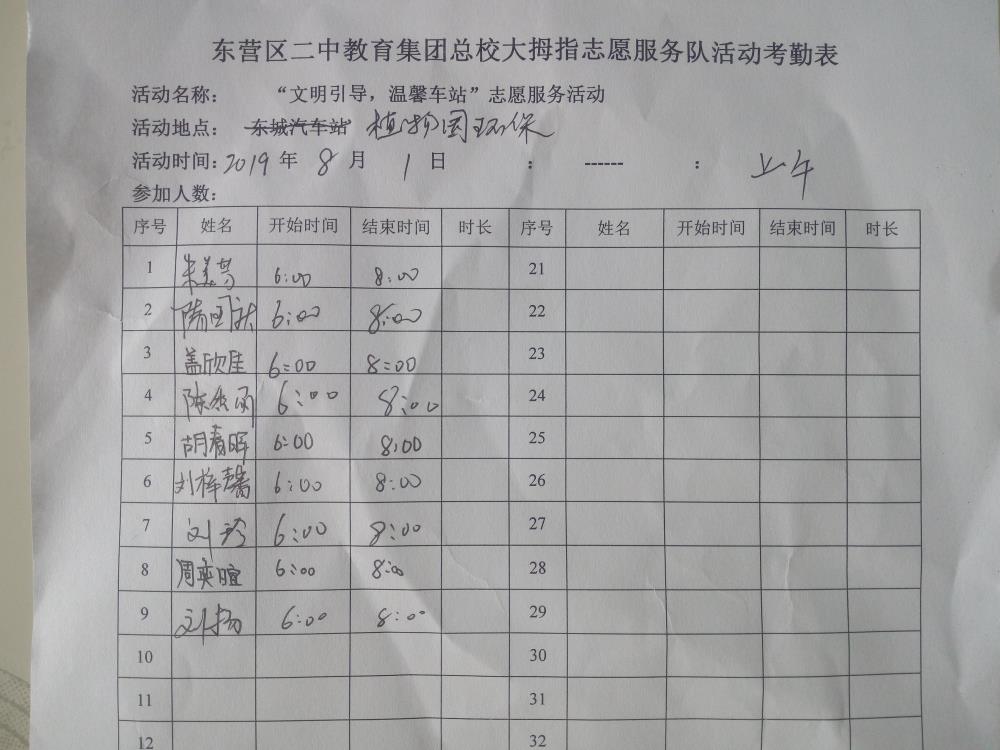 东营区二中教育集团总校大拇指志愿服务队活动考勤表
活动名称： “文明引导，温馨车站”志愿服务活动
活动地点： 东城汽车站 植物园环保
活动时间：2019 年 8 月 1 日 ： ------ ： 上午
参加人数：
序号 姓名 开始时间 结束时间 时长 序号 姓名 开始时间 结束时间 时长
1 朱美芳 6:00 8:00 21
2 6:00 8:00 22
3 盖欣佳 6:00 8:00 23
4 6:00 8:00 24
5 胡春晖 6:00 8:00 25
6 刘梓馨 6:00 8:00 26
7 刘珍 6:00 8:00 27
8 周奕暄 6:00 8:00 28
9 刘扬 6:00 8:00 29
10 30
11 31
12 32